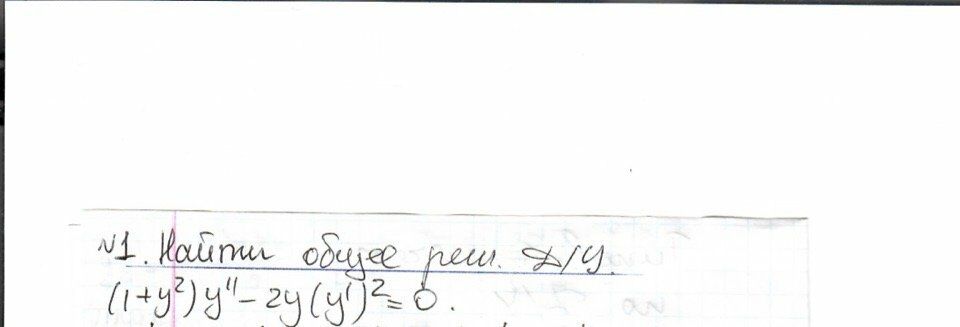 №1. Найти общее реш. Д/У.
(1+y²)y''-2y(y')²=0.